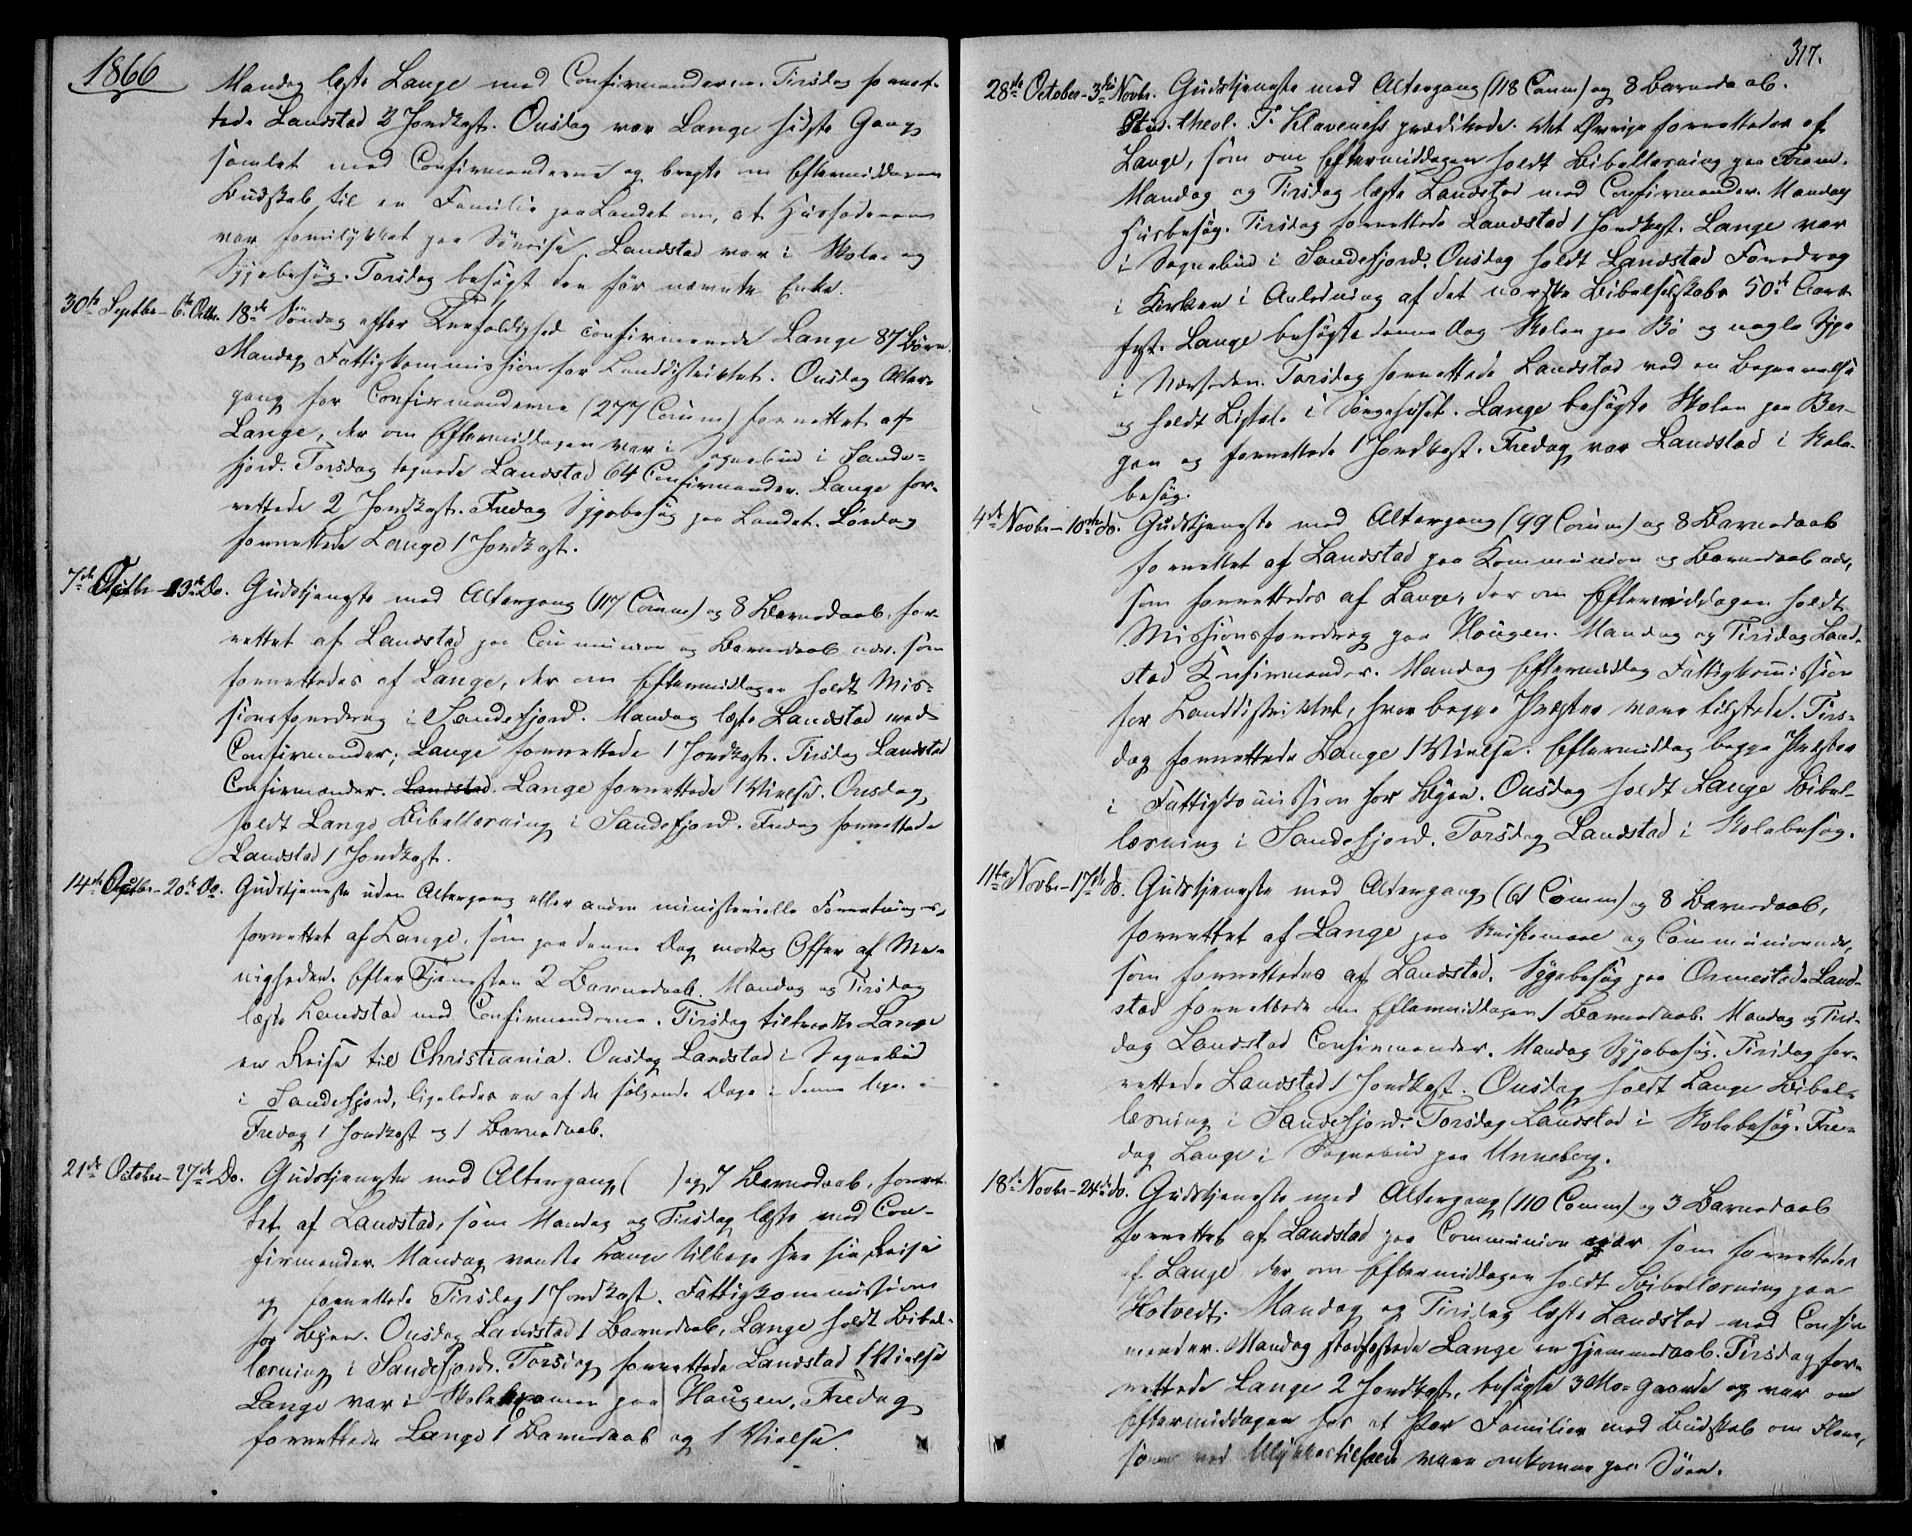 1866
Mandag læste Lange med Confirmanderne. Tirsdag forret-
tede Landstad 2 Jordkast. Onsdag var Lange sidste Gang
samlet med Confirmanderne og bragte om Eftermiddagen
Budskab til en Familie paa Landet om, at Husfaderen
var forulykket paa Söreise. Landstad var i Skole- og
Sygebesög. Torsdag besögt den för nævnte Enke.
30te Septbr - 6te Octbr. 18de Söndag efter Trefoldighed confirmerede Lange 87 Börn.
Mandag Fattigkommission for Landdistriktet. Onsdag Alter-
gang for Confirmanderne (277 Comm) forrettet af
Lange, der om Eftermiddagen var i Sognebud i Sande-
fjord. Torsdag tegnede Landstad 64 Confirmander. Lange for-
rettede 2 Jordkast. Fredag Sygebesög paa Landet. Lördag
forrettede Lange 1 Jordkast.
7de Octbr - 13de Do. Gudstjeneste med Altergang (117 Comm) og 8 Barnedaab, for-
rettet af Landstad paa Communion og Barnedaab nær, som
forrettedes af Lange, der om Eftermiddagen holdt Mis-
sionsforedrag i Sandefjord. Mandag læste Landstad med
Confirmander; Lange forrettede 1 Jordkast. Tirsdag Landstad
Confirmander. Landstad. Lange forrettede 1 Vielse. Onsdag
holdt Lange Bibellæsning i Sandefjord. Fredag forrettede
Landstad 1 Jordkast.
14de Octbr - 20de Do. Gudstjeneste uden Altergang eller andre ministerielle Forretninger,
forrettet af Lange, som paa denne Dag modtog Offer af Me-
nigheden. Efter Tjenesten 2 Barnedaab. Mandag og Tirsdag
læste Landstad med Confirmanderne. Tirsdag tiltraadte Lange
en Reise til Christiania. Onsdag Landstad i Sognebud
i Sandefjord, ligeledes en af de fölgende Dage i denne Uge.
Fredag 1 Jordkast og 1 Barnedaab.
21de October - 27de Do. Gudstjeneste med Altergang ( ) og 7 Barnedaab, forret-
tet af Landstad, som Mandag og Tirsdag læste med Con-
firmander. Mandag vendte Lange tilbage fra sin Reise
og forrettede Tirsdag 1 Jordkast. Fattigkommission
for Byen. Onsdag Landstad 1 Barnedaab, Lange holdt Bibel-
læsning i Sandefjord. Torsdag forrettede Landstad 1 Vielse
Lange var i Skoleexamen paa Haugen. Fredag
forrettede Lange 1 Barnedaab og 1 Vielse.
317.
28de October - 3die Novbr. Gudstjeneste med Altergang (118 Comm) og 8 Barnedaab.
Stud. theol. T. Klaveness prædikede. Det Övrige forrettedes af
Lange, som om Eftermiddagen holdt Bibellæsning paa Fram.
Mandag og Tirsdag læste Landstad med Confirmander. Mandag
Husbesög. Tirsdag forrettede Landstad 1 Jordkast. Lange var
i Sognebud i Sandefjord. Onsdag holdt Landstad Foredrag
i Kirken i Anledning af det norske Bibelselskabs 50de Aars-
fest. Lange besögte denne Dag Skolen paa Bö og nogle Syge
i Nærheden. Torsdag forrettede Landstad ved en Begravelse
og holdt Ligtale i Sörgehuset. Lange besögte Skolen paa Ber-
gan og forrettede 1 Jordkast. Fredag var Landstad i Skole-
besög.
4de Novbr - 10de do. Gudstjeneste med Altergang (99 Comm) og 8 Barnedaab
forrettet af Landstad paa Kommunion og Barnedaab nær,
som forrettedes af Lange, der om Eftermiddagen holdt
Missionsforedrag paa Haugen. Mandag og Tirsdag Land-
stad Konfirmander. Mandag Eftermiddag Fattigkomission
for Landdistriktet, hvor begge Præster vare tilstede. Tirs-
dag forrettede Lange 1 Vielse. Eftermiddag begge Præster
i Fattigkomission for Byen. Onsdag holdt Lange Bibel-
læsning i Sandefjord. Torsdag Landstad i Skolebesög.
11te Novbr - 17de do. Gudstjeneste med Altergang (61 Comm) og 8 Barnedaab,
forrettet af Lange paa Skriftemaal og Communion nær,
som forrettedes af Landstad. Sygebesög paa Ormestad. Land-
stad forrettede om Eftermiddagen 1 Barnedaab. Mandag og Tirs-
dag Landstad Confirmander. Mandag Sygebesög. Tirsdag for-
rettede Landstad 1 Jordkast. Onsdag holdt Lange Bibel-
læsning i Sandefjord. Torsdag Landstad i Skolebesög. Fre-
dag Lange i Sognebud paa Unneberg.
18de Novbr - 24de do. Gudstjeneste med Altergang (110 Comm) og 3 Barnedaab
forrettet af Landstad paa Communion nær som forrettedes
af Lange, der om Eftermiddagen holdt Bibellæsning paa
Hotvedt. Mandag og Tirsdag læste Landstad med Confir-
mander. Mandag stadfæstede Lange en Hjemmedaab. Tirsdag for-
rettede Lange 2 Jordkast, besögte 3 Mo-Gaarde og var om
Eftermiddagen hos et Par Familier med Budskab om Flere,
som ved Ulykkestilfælde vare omkomne paa Söen.